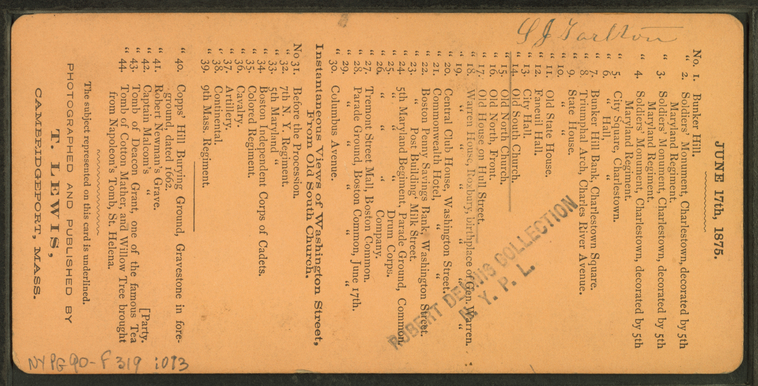 JUNE 17th, 1875.
No. 1. Bunker Hill.
" 2. Soldiers' Monument, Charlestown, decorated by 5th
Maryland Regiment.
" 3. Soldiers' Monument, Charlestown, decorated by 5th
Maryland Regiment.
" 4. Soldiers' Monument, Charlestown, decorated by 5th
Maryland Regiment.
" 5. City Square, Charlestown.
" 6. " Hall, "
" 7. Bunker Hill Bank, Charlestown Square.
" 8. Triumphal Arch, Charles River Avenue.
" 9. State House.
" 10. " "
" 11. Old State House.
" 12. Faneuil Hall.
" 13. City Hall.
" 14. Old South Church.
" 15. Old North Church.
" 16. Old North, Front.
" 17. Old House on Hull Street.
" 18. Warren House, Roxbury, birthplace of Gen. Warren.
" 19. " " " "
" 20. Central Club House, Washington Street.
" 21. Commonwealth Hotel, " "
" 22. Boston Penny Savings Bank, Washington Street.
" 23. " Post Building, Milk Street.
" 24. 5th Maryland Regiment, Parade Ground, Common.
" 25. " " " Drum Corps.
" 26. " " " Company.
" 27. Tremont Street Mall, Boston Common.
" 28. Parade Ground, Boston Common, June 17th.
" 29. " " " " "
" 30. Columbus Avenue.
Instantaneous Views of Washington Street,
Front Old South Church.
No 31. Before the Procession.
" 32. 7th N. Y. Regiment.
" 33. 5th Maryland "
" 34. Boston Independent Corps of Cadets.
" 35. Colored Regiment.
" 36. Cavalry.
" 37. Artillery.
" 38. Continental.
" 39. 9th Mass. Regiment.
" 40. Copps' Hill Burying Ground, Gravestone in fore-
ground, dated 1662.
" 41. Robert Newman's Grave.
" 42. Captain Malcom's " [Party.
" 43. Tomb of Deacon Grant, one of the famous Tea
" 44. Tomb of Cotton Mather, and Willow Tree brought
from Napoleon's Tomb, St. Helena.
The subject represented on this card is underlined.
PHOTOGRAPHED AND PUBLISHED BY
T. LEWIS,
CAMBRIDGEPORT, MASS.
ROBERT DENNIS COLLECTION
N. Y. P. L.
NYPG90-F319 :013